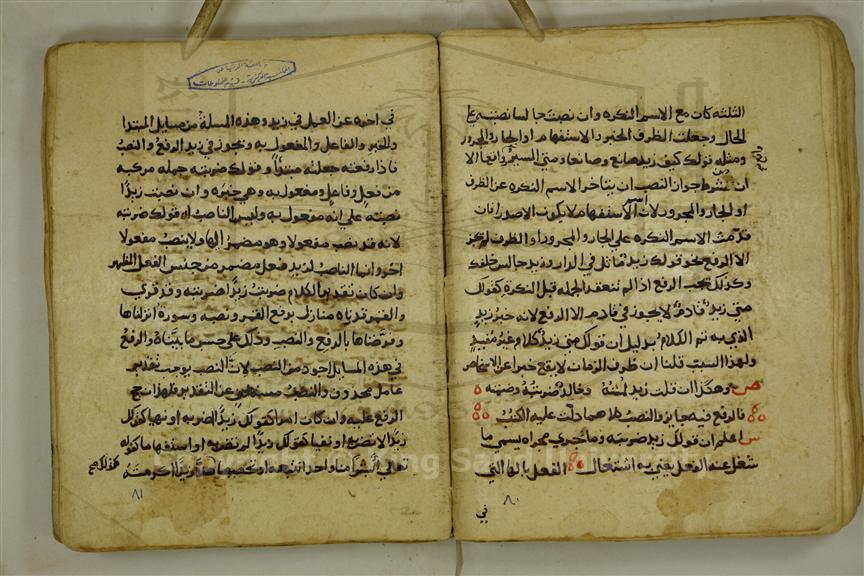 الثلثه كان مع الاسم النكره وان نصبت جالسا نصبته علي
الحال وجعلت الظرف الخبر والاستفهام او الجار والمجرور
ومثله قولك كيف زيد صانع وصانعا ومتي المسير واقعا الا
ان من شرط جواز النصب ان يتاخر الاسم النكره عن الظرف
او الجار والمجرور لان اسم الاستفهام لا يكون الا صدرا فان
قدمت الاسم النكره علي الجار والمجرور او الظرف لم يجز
الا الرفع نحو قولك زيد قائل في الدار وزيد جالس خلفك
وكذلك يجب الرفع اذا لم تنعقد الجمله قبل النكره كقولك
متي زيد قادم لا يجوز في قادم الا الرفع لانه خبر زيد
الذي به تم الكلام بدليل ان قولك متي زيد كلام غير مفيد
ولهذا السبب قلنا ان ظرف الزمان لا يقع خبرا عن الاشخاص
ص وهكذا ان قلت زيد لمته وخالد ضربته وضمته
فالرفع فيه جايز والنصب كلاهما دلت عليه الكتب
ش اعلم ان قولك زيد ضربته وما جري مجراه يسمي ما
شغل عنه الفعل يعني به اشتغال الفعل بالها التي
في
٨٠
جامعة الرياض
المكتبة المركزية - قسم المخطوطات
في اخره عن العمل في زيد وهذه المسلة من مسايل المبتدا
والخبر والفاعل والمفعول به ويجوز في زيد الرفع والنصب
فاذا رفعته جعلته مبتدأ وقولك ضربته جمله مركبه
من فعل وفاعل ومفعول به وهي خبره وان نصبت زيدا
نصبته علي انه مفعول به وليس الناصب له قولك ضربته
لانه قد نصب مفعولا وهو مضمر الها ولا ينصب مفعولا
اخر وانما الناصب لزيد فعل مضمر من جنس الفعل الظهر
وان كان تقدير الكلام ضربت زيدا ضربته وقد قري
والقمر قدرناه منازل برفع القمر ونصبه وسورة انزلناها
وفرضناها بالرفع والنصب وذلك علي حسب ما بيناه والرفع
في هذه المسايل اجود من النصب لان النصب يوجب تقدير
عامل محذوف والنصب مستغني عن التقدير فلهذا رجح
الرفع عليه وان كان امرا كقولك زيدا اضربه او نهيا كقولك
زيدا لا تضربه او نفيا كقولك زيدا لم نضربه او استفهاما كقوله
تعالي ابشرا منا واحدا نتبعه او تحضيضا هلا زيدا اكرمته
كقولك
٨١